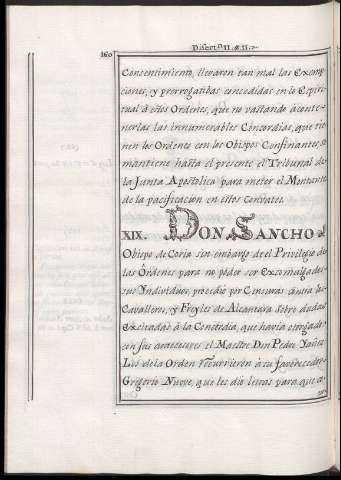 160
Disert.ⁿ II. §. II.
Consentimiento, llevaron tan mal las Exemp
ciones, y prerrogatibas concedidas en lo Espiri
tual à estos Ordenes, que no vastando à conte
nerlas las innumerables Concordias, que tie
nen los Ordenes con los Obispos Confinantes, se
mantiene hasta el presente el Tribunal de
la Junta Apostolica para meter el Montante
de la pacificacion en estos Combates.
XIX. DON SANCHO el
Obispo de Coria sin embargo de el Privilegio de
las Ordenes para no poder ser Excomulgados
sus Individuos, procedio por Censuras contra los
Cavalleros, y Freyles de Alcantara sobre dudas
Excitadas à la Concordia, que havia otorgado
con sus antecesores el Maestre Don Pedro Yañez
Los de la Orden recurrieron à su favorecedor
Gregorio Nueve, que les dio letras para que el